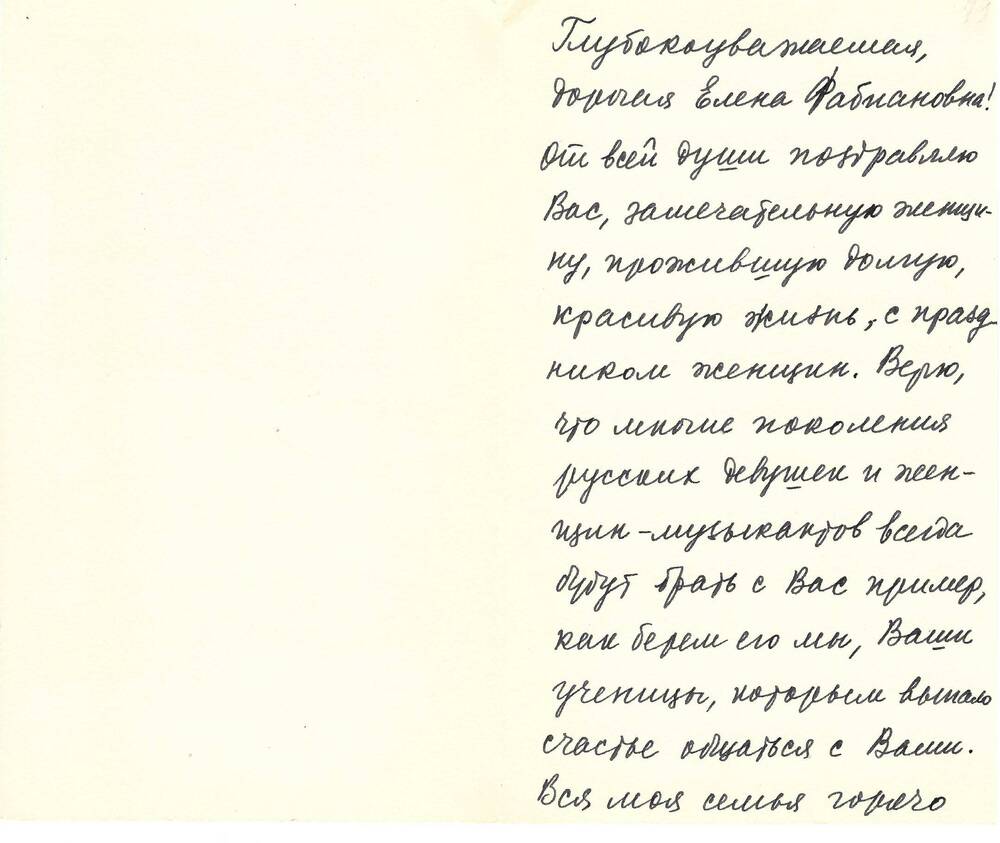 Глубокоуважаемая,
дорогая Елена Фабиановна!
От всей души поздравляю
Вас, замечательную женщи-
ну, прожившую долгую,
красивую жизнь, с празд-
ником женщин. Верю,
что многие поколения
русских девушек и жен-
щин-музыкантов всегда
будут брать с Вас пример,
как берем его мы, Ваши
ученицы, которым выпало
счастье общаться с Вами.
Вся моя семья горячо